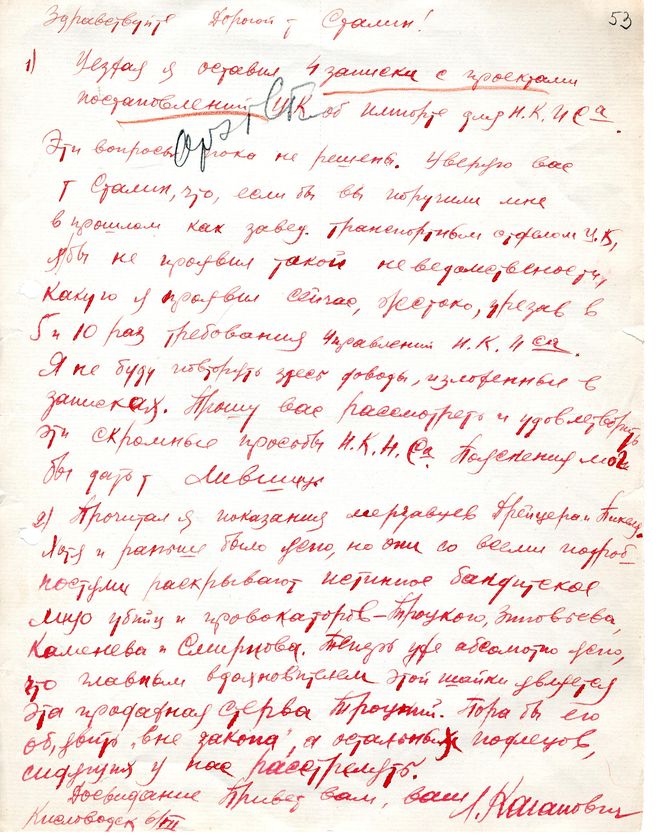 Здравствуйте Дорогой т Сталин!
53
1) Уезжая я оставил 4 записки с проектами
постановлений ЦК об импорте для Н.К.П са.
Эти вопросы пока не решены. Уверую вас
т Сталин, что, если бы вы поручили мне
в прошлом как завед. транспортным отделом Ц.К,
я бы не проявил такой неведомственности,
какую я проявил сейчас, жестоко, урезав в
5 и 10 раз требования управлений Н.К.П са.
Я не буду повторять здесь доводы, изложенные в
записках. Прошу вас рассмотреть и удовлетворить
эти скромные просьбы Н.К.П. са Пояснения мог
бы дать т Лившиц
2) Прочитал я показания мерзавцев Дрейцера и Пикеля.
Хотя и раньше было ясно, но они со всеми подроб
ностями раскрывают истинное бандитское
лицо убийц и провокаторов – Троцкого, Зиновьева,
Каменева и Смирнова. Теперь уже абсолютно ясно,
что главным вдохновителем этой шайки является
эта продажная стерва Троцкий. Пора бы его
об'явить "вне закона", а остальных подлецов,
сидящих у нас расстрелять.
Досвидание Привет вам, ваш Л. Каганович
Кисловодск 6/VII